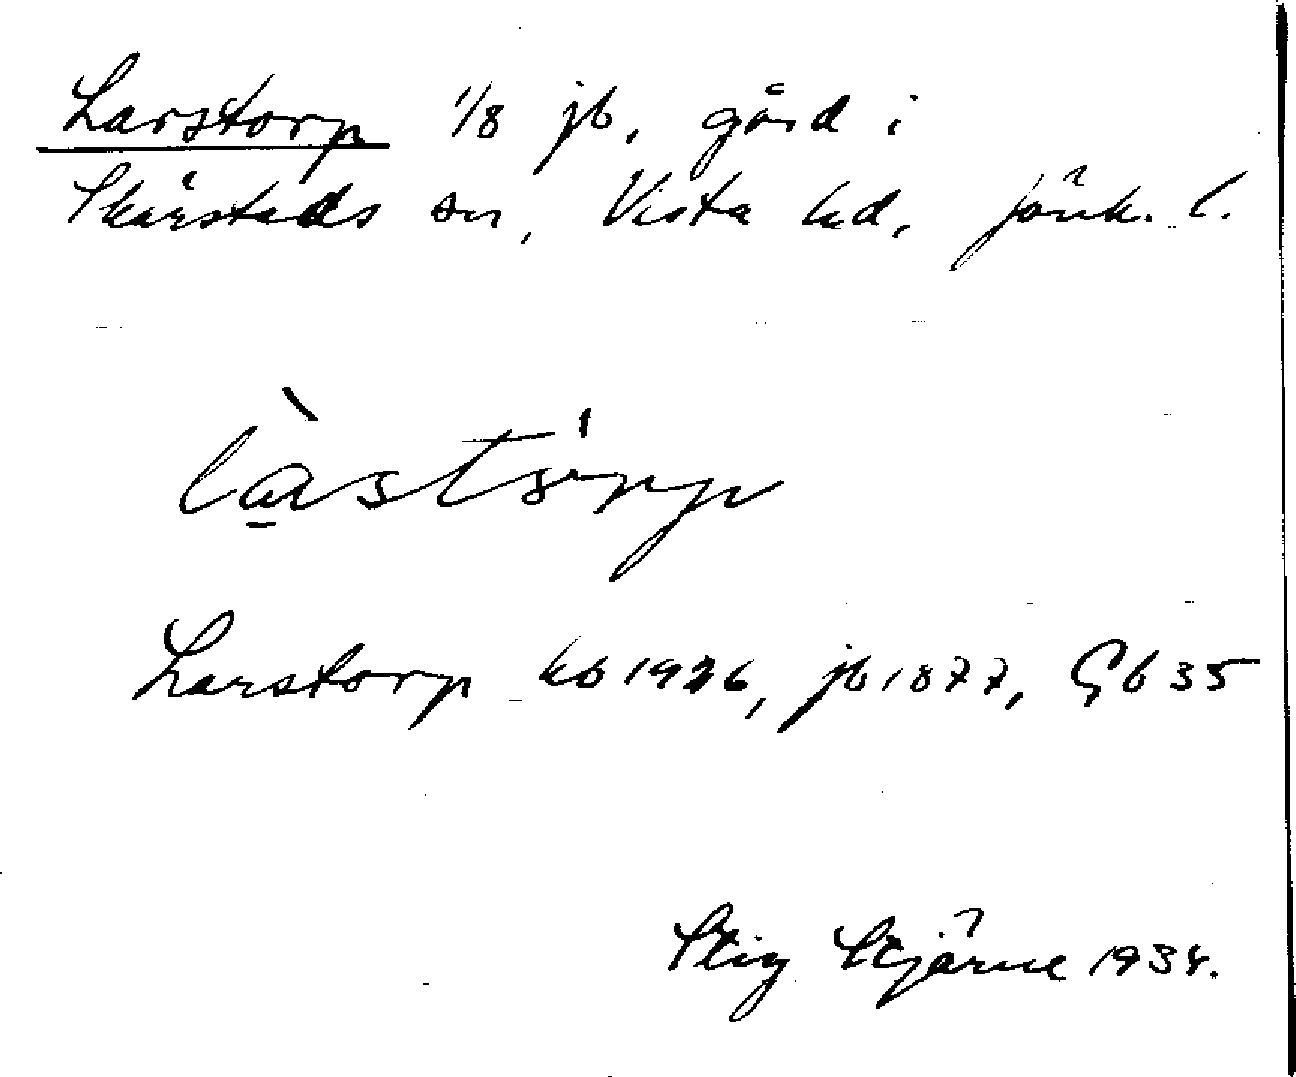 Larstorp 1/8 jb, gård i
Skärstads sn, Vista hd, Jönk. l.
làstörp
Larstorp kb 1926, jb 1877, Gb 35
Stig Stjärne 1934.